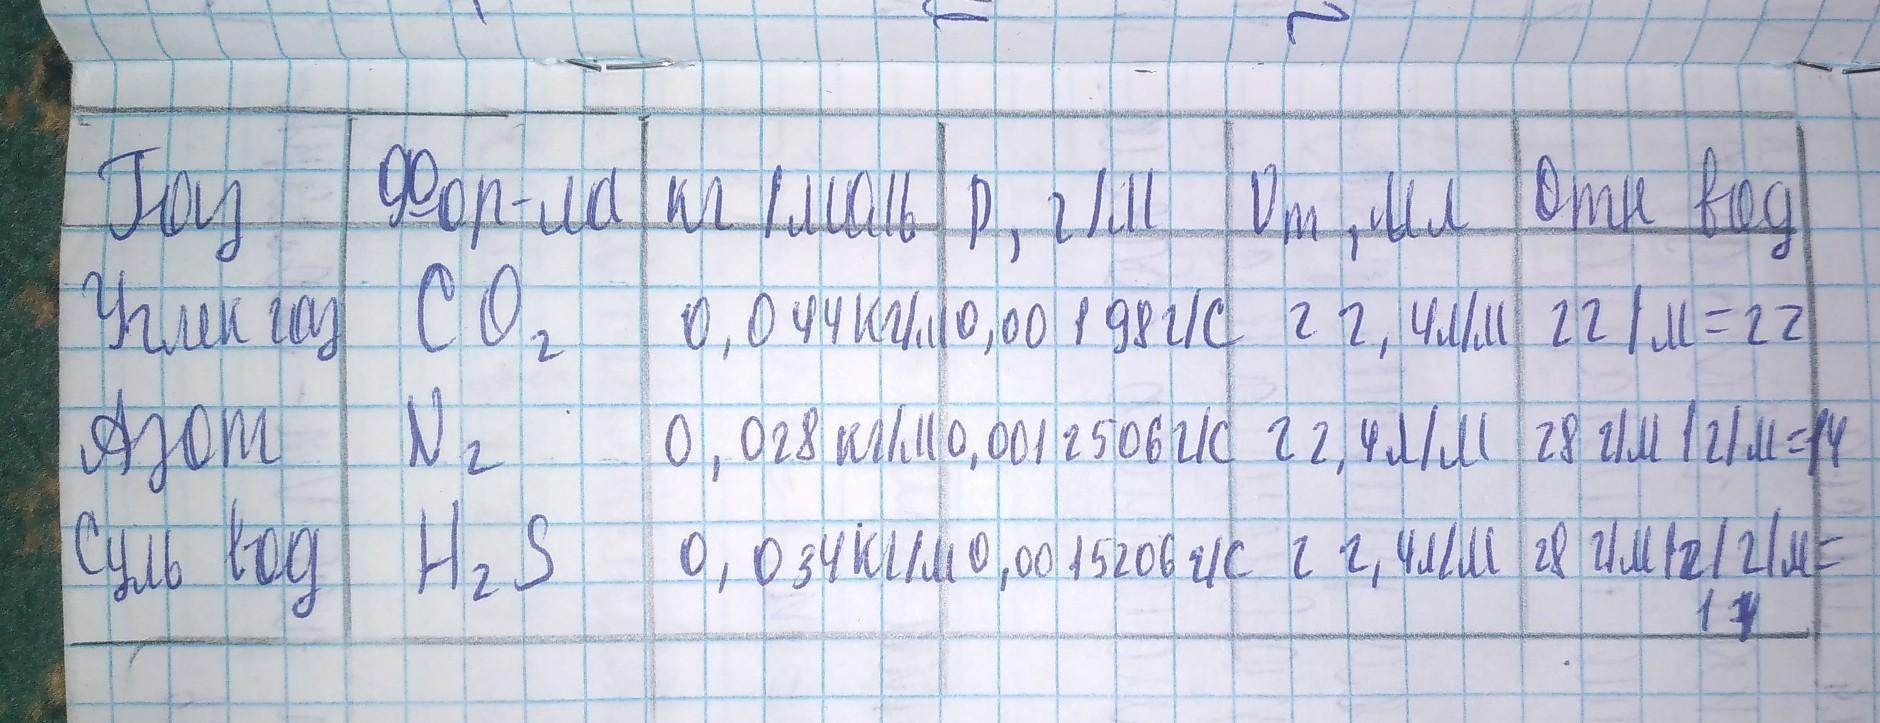 Газ Фор-ла кг/моль р, г/м Vm, мл Отн вод
Углек газ CO2 0,044кг/м 0,00198г/с 22,4л/м 22/м=22
Азот N2 0,028кг/м 0,0012506г/с 22,4л/м 28г/м/2/м=14
Суль вод H2S 0,034кг/м 0,0015206г/с 22,4л/м 28г/м/2/м=
17